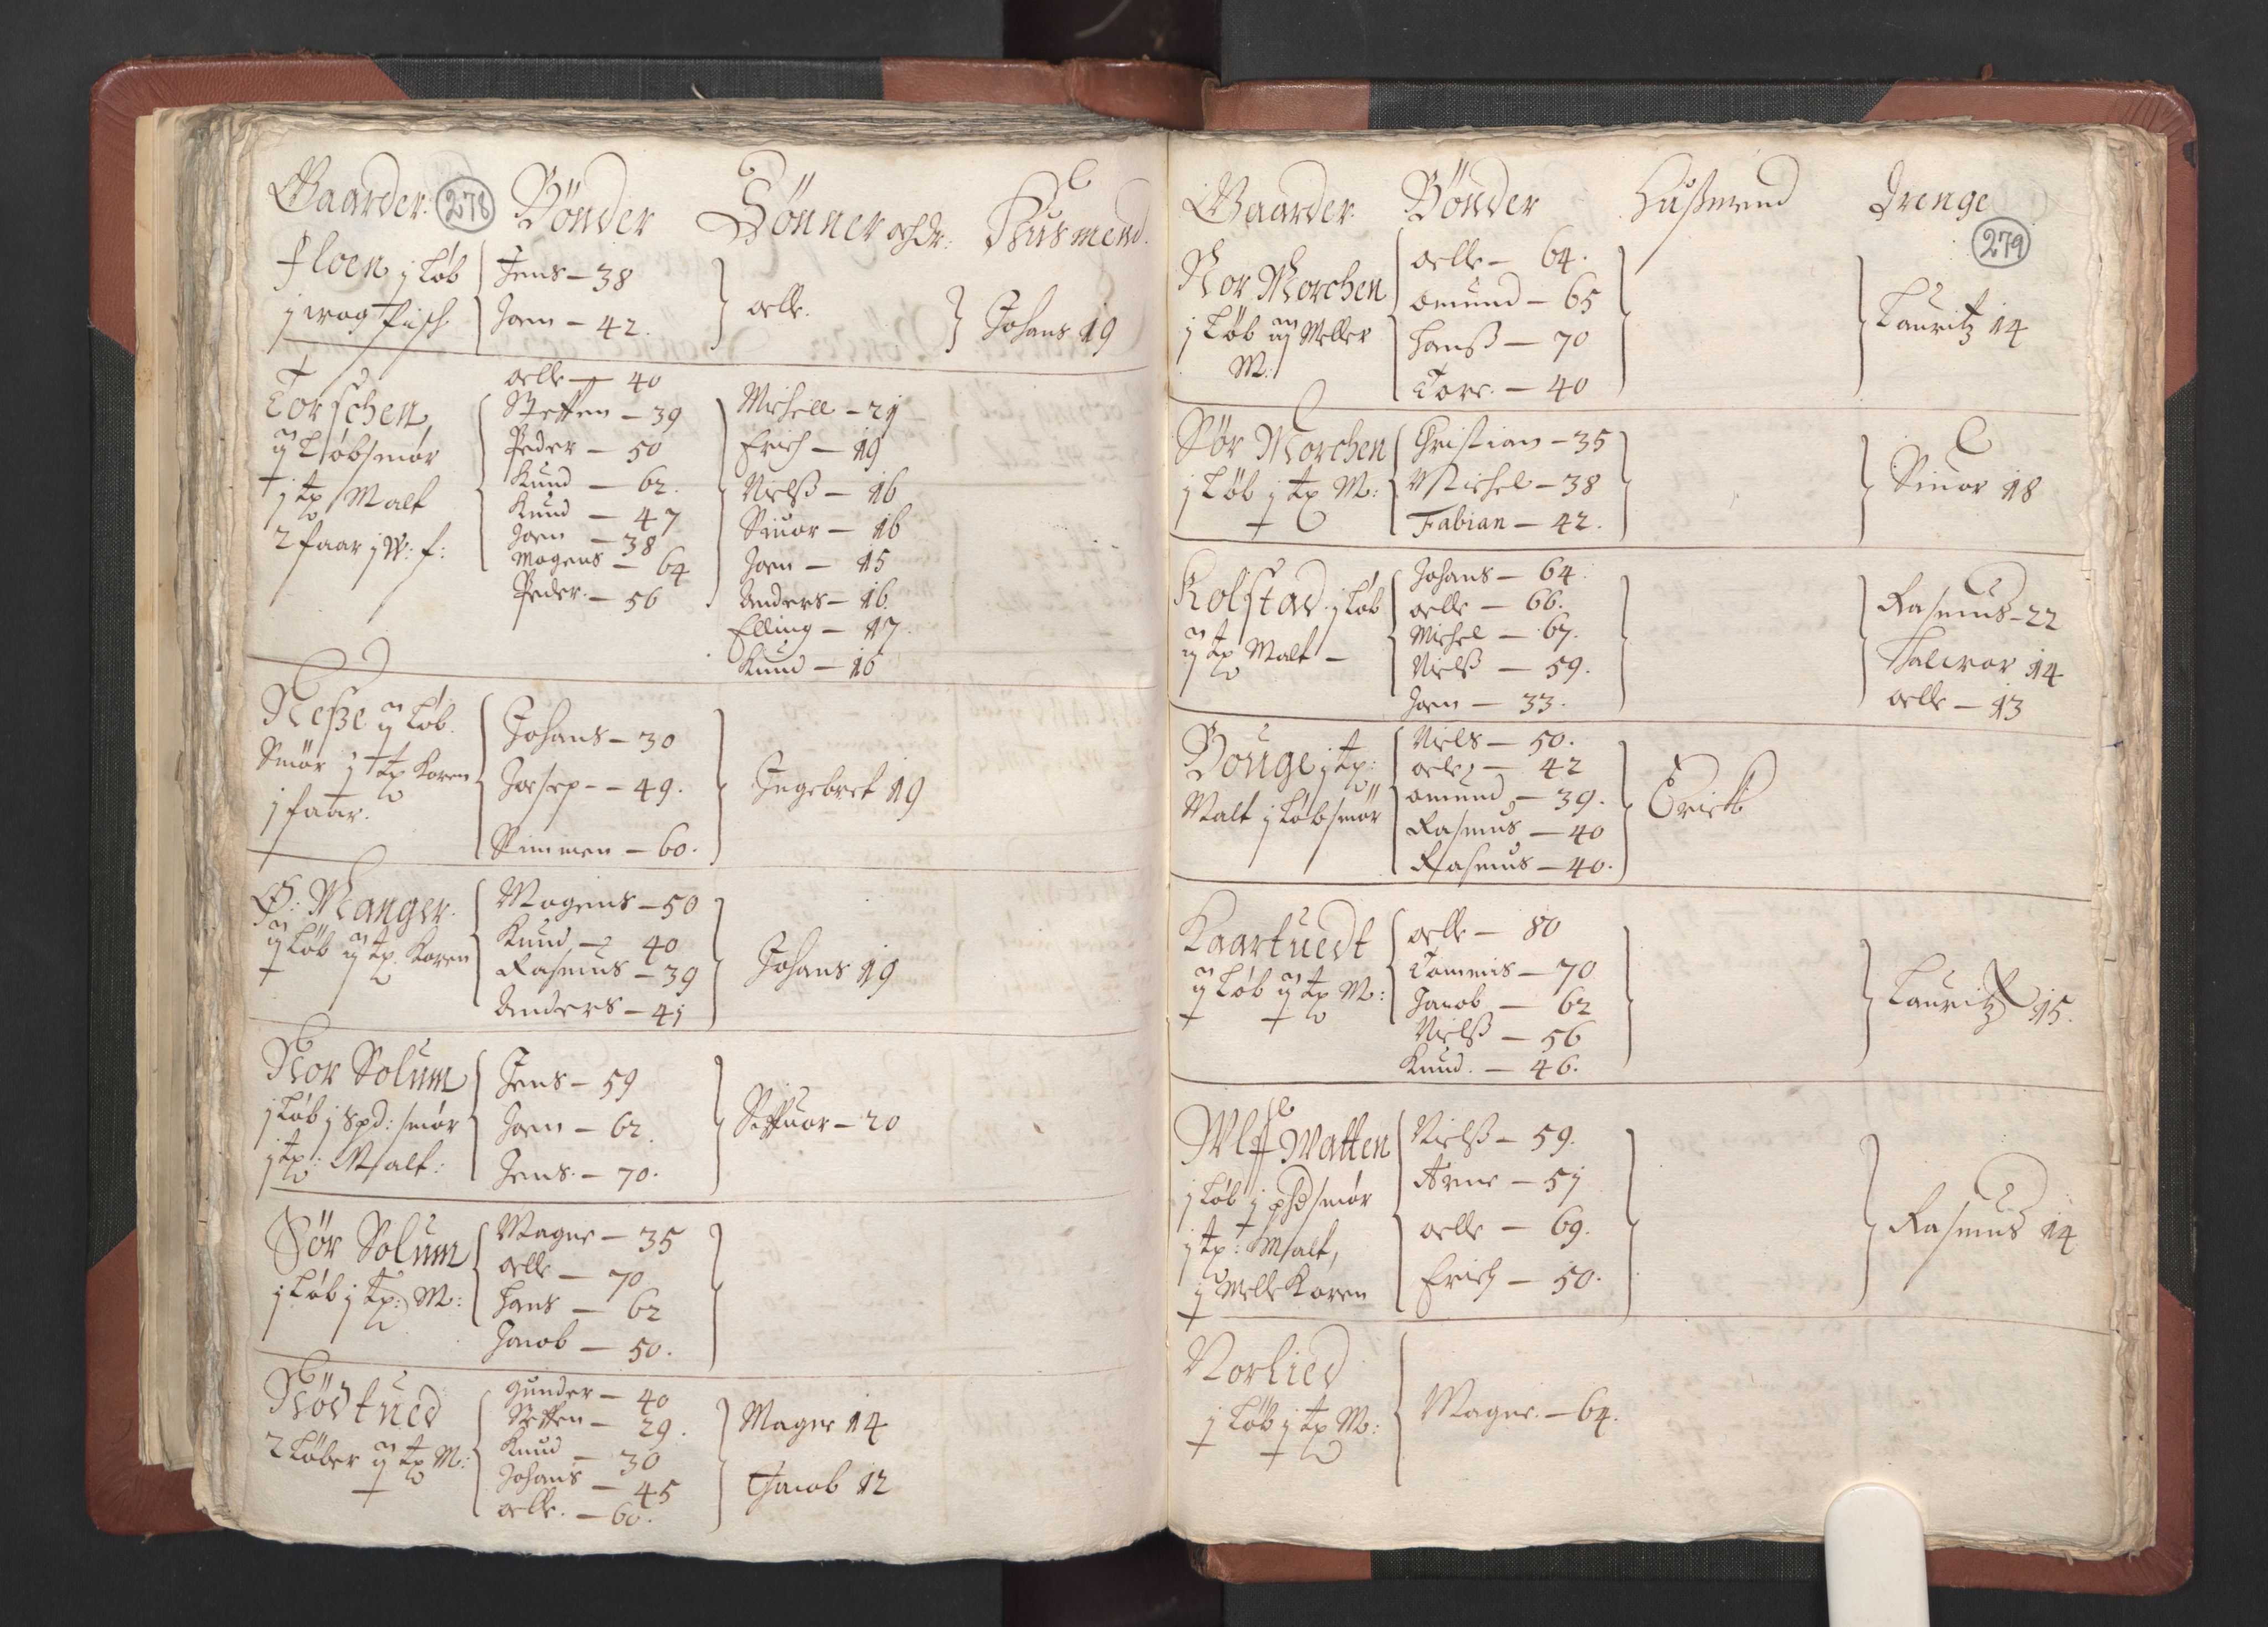 Gaarder. 278 Bönder Sönner och dr: Husmend.
Floen j Løb
j wog fisch
Jens – 38
Joen – 42.
oelle.
Johans 19
Torschen,
ij Løb smør
j tp Malt
2 faar j W: f:
oelle – 40
Steffen – 39
Peder – 50
Knud – 62.
Knud – 47
Joen – 38
Mogens – 64
Peder – 56
Michell – 21
Erich – 19
Nielß – 16
Siuor – 16
Joen – 15
Anders – 16
Elling – 17
Knud – 16
Neße ij Løb.
Smör j tp Koren
j faar.
Johans – 30
Josep – 49.
Simmen – 60.
Ingebret 19
Ø: Manger.
ij Løb ij tp. Koren
Mogens – 50
Knud – 40
Rasmus – 39
Anders – 41
Johans 19
Nor Solum
j Løb j spd: smör
j tp: Malt:
Jens – 59
Joen – 62.
Jens – 70.
Siffuor – 20
Sör Solum
j Løb j tp: M:
Magne – 35
oelle – 70
Hans – 62
Jacob – 50.
Rödtued
2 Løber ij tp M:
Gunder – 40
Steffen – 29.
Knud – 30
Johans – 45
oelle. – 60.
Magne 14
Jacob 12
Gaarder. Bönder Hußmend Drenge
279
Nor Morchen
j Løb ij Meller
M:
oelle – 64.
omund – 65
Hanß – 70
Tore. – 40
Lauritz 14
Sör Morchen
j Løb j tp M:
Christian – 35
Michel – 38
Fabian – 42.
Siuor 18
Kolstad j Løb
ij tp Malt –
Johans – 64.
oelle – 66.
Michel – 67.
Nielß – 59.
Joen – 33.
Rasmus – 22
Halwor 14
oelle – 13
Bouge j tp:
Malt j Løb smör
Niels – 50.
oele – 42
omund – 39.
Rasmus – 40
Rasmus – 40.
Erick
Kaartuedt
ij Løb ij tp M:
oelle – 80
Tommis – 70
Jacob – 62
Nielß – 56
Knud. – 46.
Lauritz 15.
Watten
j Løb j smör
j tp: Malt,
j Melle Koren
Nielß – 59.
Arne – 51
oelle – 69.
Erich – 50.
Rasmus 14
Norlied
j Løb j tp M:
Magne. – 64.